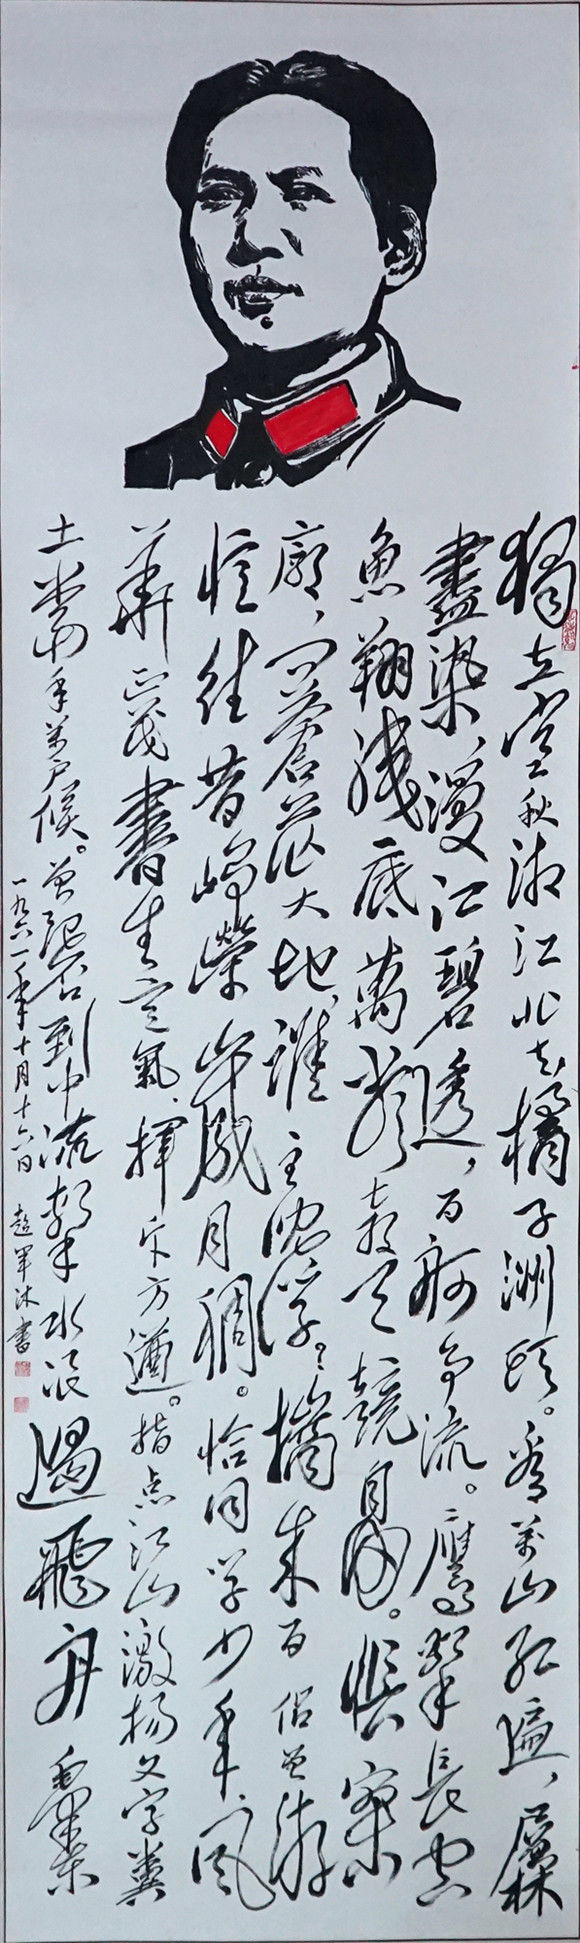 獨立寒秋湘江北去橘子洲頭。看萬山紅遍、層林
盡染、漫江碧透，百舸爭流。鷹擊長空
魚翔淺底萬類霜天競自由。悵寥
廓、問蒼茫大地、誰主沉浮、攜來百侶曾游
憶往昔崢嶸歲月稠。恰同學少年、風
華正茂書生意氣、揮斥方遒。指点江山激揚文字糞
土當年萬戶侯。曾記否到中流擊水浪遏飛舟 毛澤東
一九六一年十月十六日 趙軍沐書